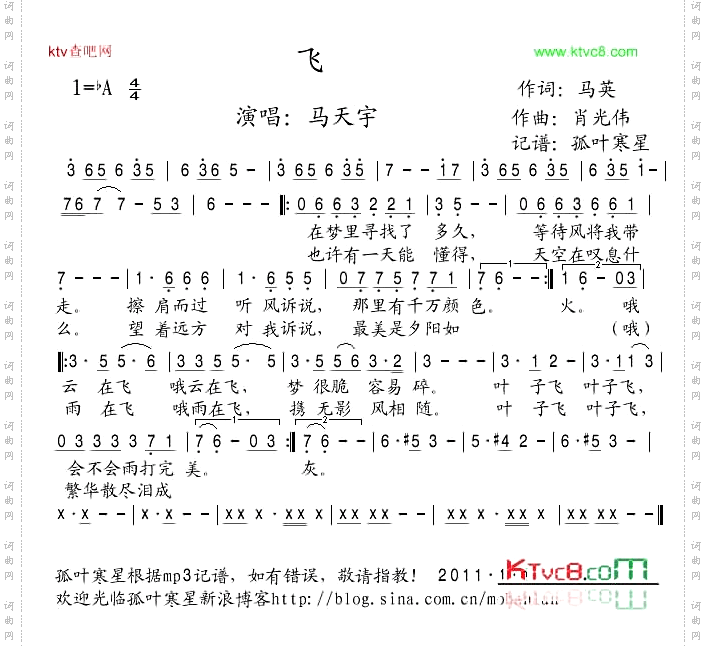 ktv查吧网
飞
www.ktvc8.com
1=♭A 4/4
作词：马英
演唱：马天宇
作曲：肖光伟
记谱：孤叶寒星
3 65 6 35 | 6 36 5 - | 3 65 6 35 | 7 - - 17 | 3 65 6 35 | 6 35 1 - |
76 7 7 - 53 | 6 - - - ‖: 0 6 6 3 2 2 1 | 3 5 - - | 0 6 6 3 6 6 1 |
在梦里寻找了 多久， 等待风将我带
也许有一天能 懂得， 天空在叹息什
7 - - - | 1· 6 6 6 | 1· 6 5 5 | 0 7 7 5 7 7 1 | 7 6 - - :‖ 1 6 - 03 |
走。 擦肩而过 听风诉说， 那里有千万颜色。 火。 哦
么。 望着远方 对我诉说， 最美是夕阳如 （哦）
‖: 3· 5 5· 6 | 3 3 5 5· 5 | 3· 5 5 6 3·2 | 3 - - - | 3· 1 2 - | 3· 1 1 3 |
云 在飞 哦云在飞， 梦 很脆 容易 碎。 叶 子飞 叶子飞，
雨 在飞 哦雨在飞， 携 无影 风相 随。 叶 子飞 叶子飞，
0 3 3 3 3 7 1 | 7 6 - 0 3 :‖ 7 6 - - | 6·#5 3 - | 5·#4 2 - | 6·#5 3 - |
会不会雨打完 美。 灰。
繁华散尽泪成
x· x - - | x x· x - | x· x - - | xx xx x - | xx xx x - | xx xx x - ‖
孤叶寒星根据mp3记谱，如有错误，敬请指教！ 2011·1
KTvc8.com
欢迎光临孤叶寒星新浪博客http://blog.sina.com.cn/
词曲网